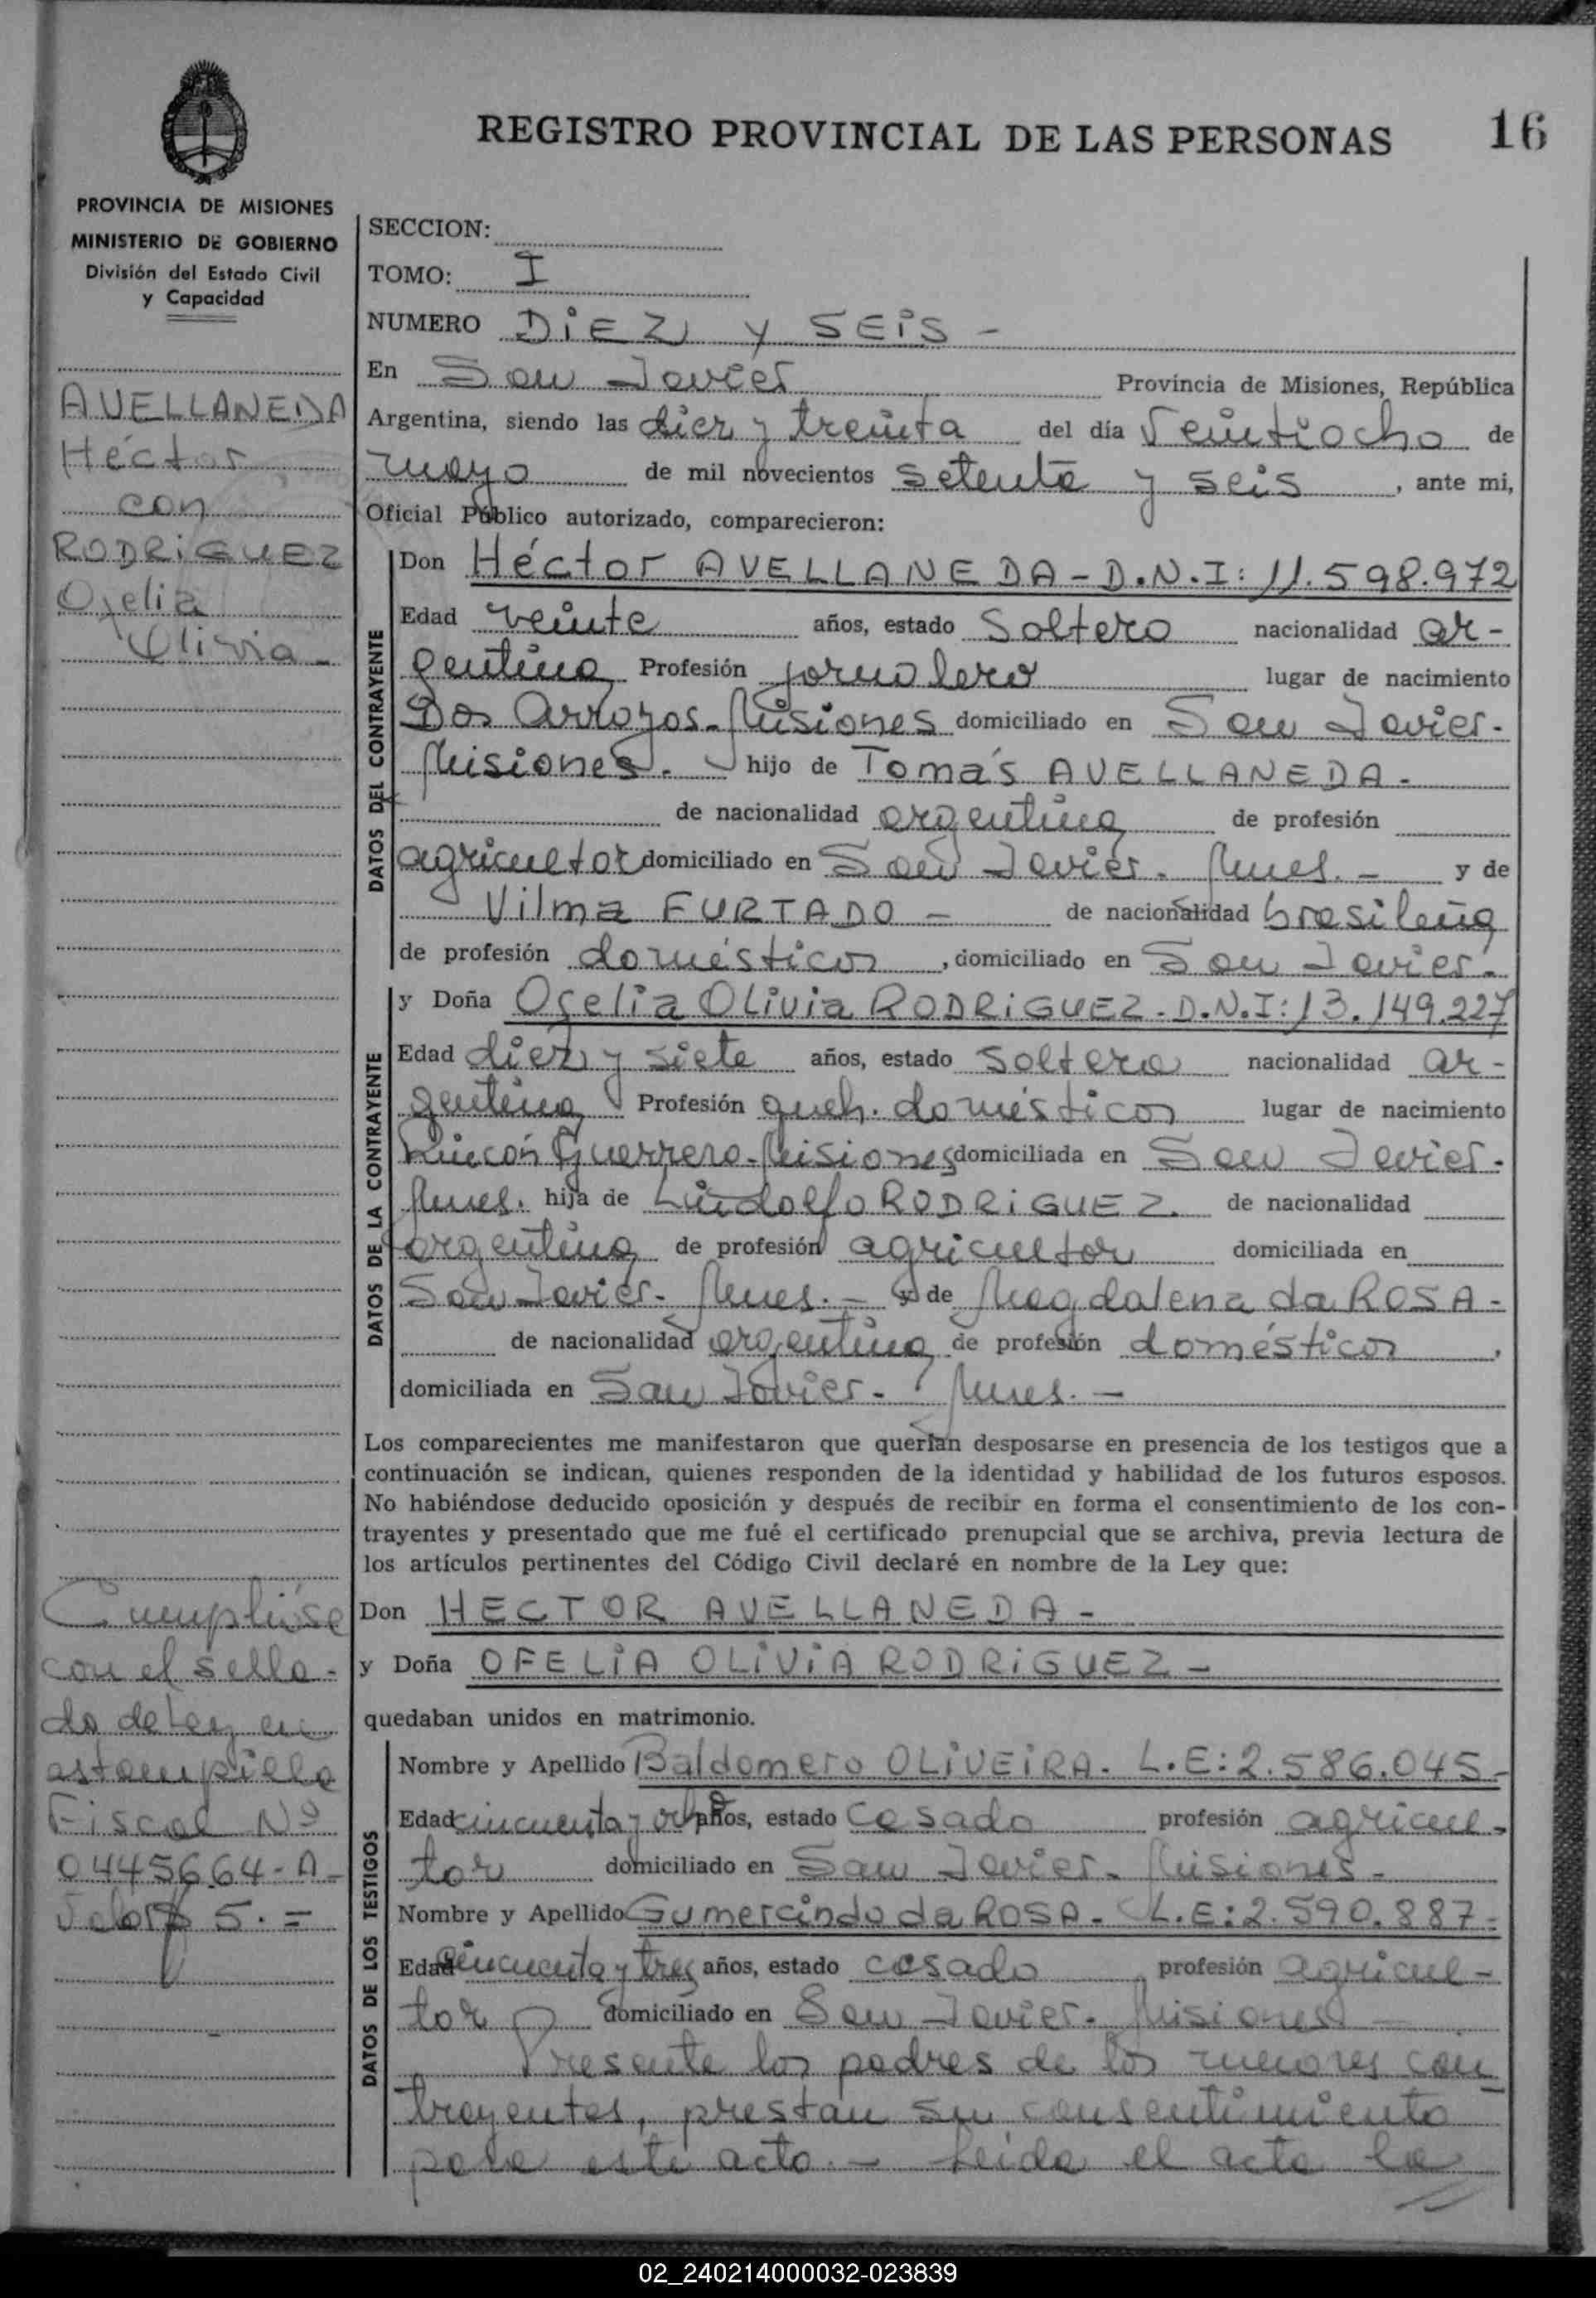 REGISTRO PROVINCIAL DE LAS PERSONAS
16
PROVINCIA DE MISIONES
MINISTERIO DE GOBIERNO
División del Estado Civil
y Capacidad
AVELLANEDA
Héctor
con
RODRiGUEZ
Ofelia
Olivia -
Cumplióse
con el sella-
do de Ley en
estampilla
Fiscal Nº
0445664-A-
Valor $ 5.=
SECCION:
TOMO: I
NUMERO DiEZ y SEiS -
En San Javier Provincia de Misiones, República
Argentina, siendo las diez y treinta del día Veintiocho de
mayo de mil novecientos setenta y seis, ante mi,
Oficial Público autorizado, comparecieron:
DATOS DEL CONTRAYENTE
Don Héctor AVELLANEDA - D.N.I: 11.598.972
Edad veinte años, estado Soltero nacionalidad ar-
gentina Profesión jornalero lugar de nacimiento
Dos Arroyos-Misiones domiciliado en San Javier-
Misiones. hijo de Tomás AVELLANEDA-
de nacionalidad argentina de profesión
agricultor domiciliado en San Javier- Mnes. - y de
Vilma FURTADO - de nacionalidad brasileña
de profesión domésticos, domiciliado en San Javier-
DATOS DE LA CONTRAYENTE
y Doña Ofelia Olivia RODRiGUEZ- D.N.I: 13.149.227
Edad diez y siete años, estado soltera nacionalidad ar-
gentina Profesión queh. domésticos lugar de nacimiento
Rincón Guerrero-Misiones domiciliada en San Javier-
Mnes. hija de Lindolfo RODRiGUEZ. de nacionalidad
argentina de profesión agricultor domiciliada en
San Javier- Mnes. - y de Magdalena da ROSA-
de nacionalidad argentina de profesión domésticos,
domiciliada en San Javier- Mnes. -
Los comparecientes me manifestaron que querían desposarse en presencia de los testigos que a
continuación se indican, quienes responden de la identidad y habilidad de los futuros esposos.
No habiéndose deducido oposición y después de recibir en forma el consentimiento de los con-
trayentes y presentado que me fué el certificado prenupcial que se archiva, previa lectura de
los artículos pertinentes del Código Civil declaré en nombre de la Ley que:
Don HECTOR AVELLANEDA-
y Doña OFELiA OLiViA RODRiGUEZ-
quedaban unidos en matrimonio.
DATOS DE LOS TESTIGOS
Nombre y Apellido Baldomero OLiVEiRA- L.E: 2.586.045-
Edad cincuenta y ocho años, estado casado profesión agricul-
tor domiciliado en San Javier- Misiones-
Nombre y Apellido Gumercindo da ROSA- L.E: 2.590.887-
Edad cincuenta y tres años, estado casado profesión agricul-
tor domiciliado en San Javier- Misiones-
Presente los padres de los menores con
trayentes, prestan su consentimiento
para este acto. - Leida el acta la
02_240214000032-023839